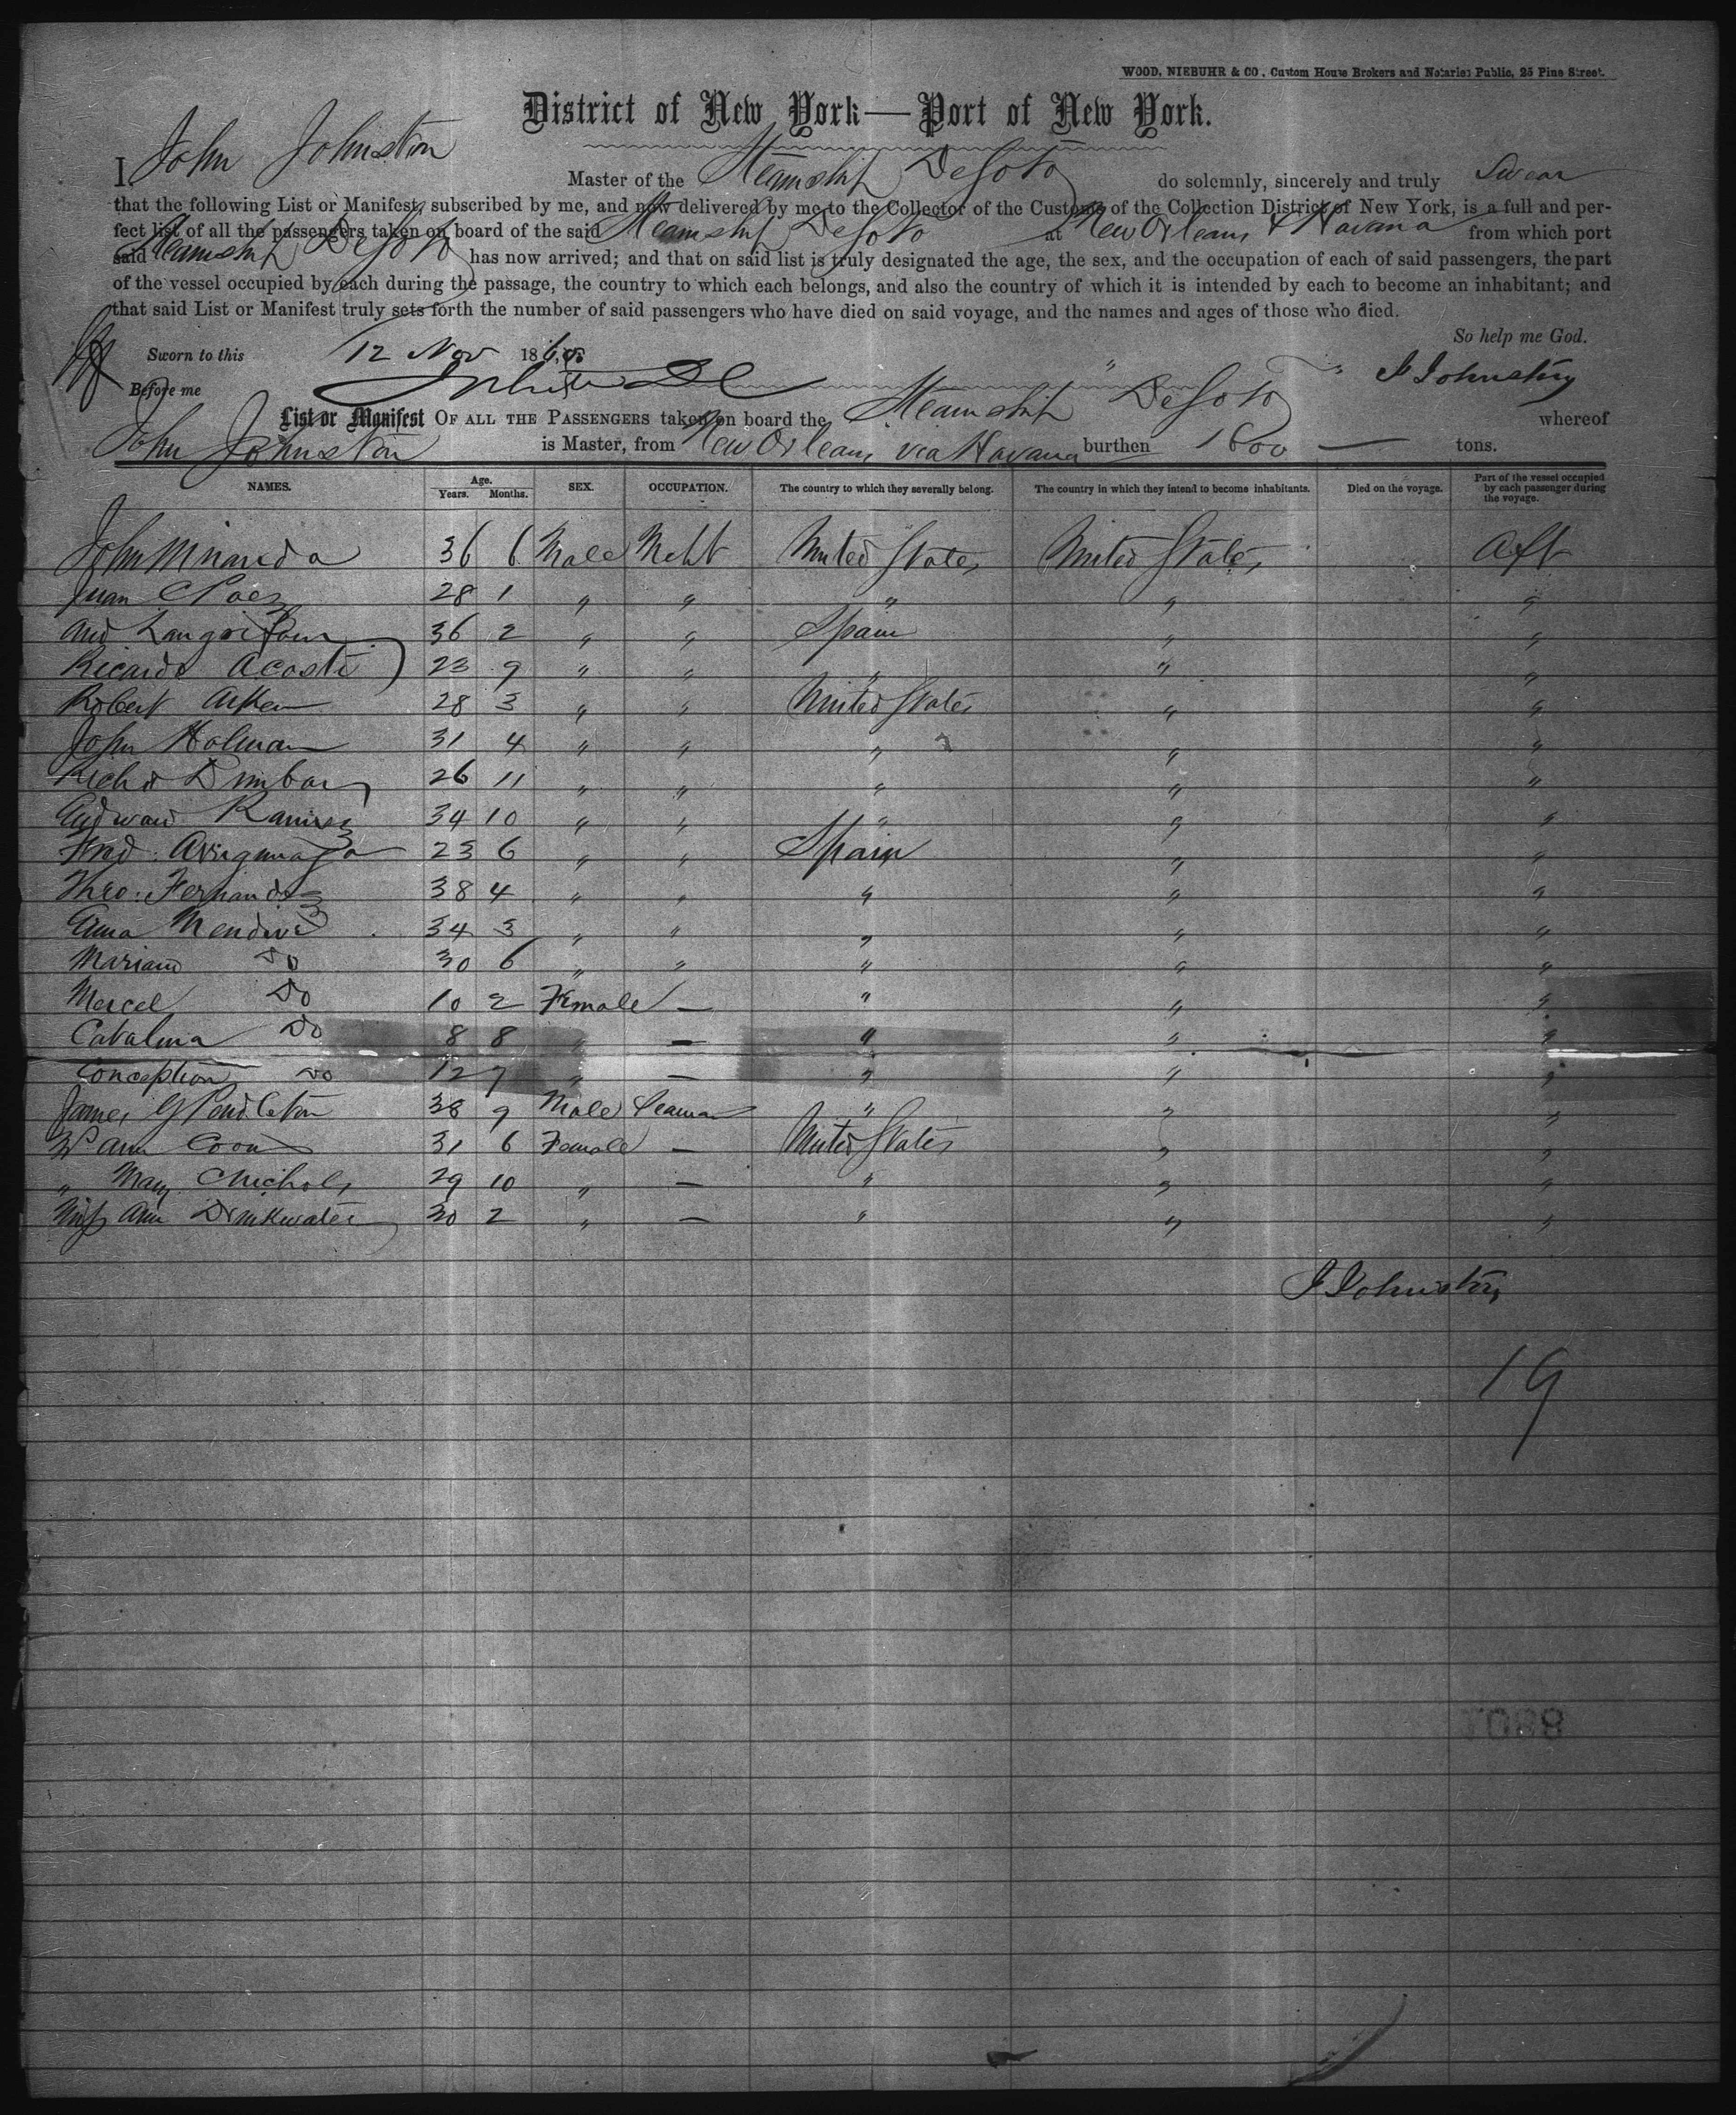 WOOD, NIEBUHR & CO., Custom House Brokers and Notaries Public, 25 Pine Street.
District of New York—Port of New York.
I, John Johnston Master of the Steamship DeSoto do solemnly, sincerely and truly Swear
that the following List or Manifest, subscribed by me, and now delivered by me to the Collector of the Customs of the Collection District of New York, is a full and per-
fect list of all the passengers taken on board of the said Steamship DeSoto at New Orleans & Havana from which port
said Steamship DeSoto has now arrived; and that on said list is truly designated the age, the sex, and the occupation of each of said passengers, the part
of the vessel occupied by each during the passage, the country to which each belongs, and also the country of which it is intended by each to become an inhabitant; and
that said List or Manifest truly sets forth the number of said passengers who have died on said voyage, and the names and ages of those who died.
So help me God.
Sworn to this 12 Nov 186
Before me
J Johnston
List or Manifest OF ALL THE PASSENGERS taken on board the Steamship DeSoto whereof
John Johnston is Master, from New Orleans via Havana burthen 1600 — tons.
NAMES. Age. Years. Months. SEX. OCCUPATION. The country to which they severally belong. The country in which they intend to become inhabitants. Died on the voyage. Part of the vessel occupied by each passenger during the voyage.
John Miranda 36 6 Male Mcht United States United States Aft
Juan C Paez 28 1 " " " " "
And 36 2 " " Spain " "
Ricardo Acosta 23 9 " " " " "
Robert Aitken 28 3 " " United States " "
John Holman 31 4 " " " " "
Richd Dunbar 26 11 " " " " "
Edward Ramirez 34 10 " " " " "
Fred: 23 6 " " Spain " "
Theo: Fernandez 38 4 " " " " "
Mendive 34 3 " " " " "
Mariano Do 30 6 " " " " "
Mercel Do 10 2 Female — " " "
Catalina Do 8 8 " — " " "
Conception Do 12 7 " — " " "
James G Pendleton 38 9 Male Seaman " " "
Ann Coon 31 6 Female — United States " "
" Mary Nichols 29 10 " — " " "
Miss Ann Drinkwater 30 2 " — " " "
J Johnston
19